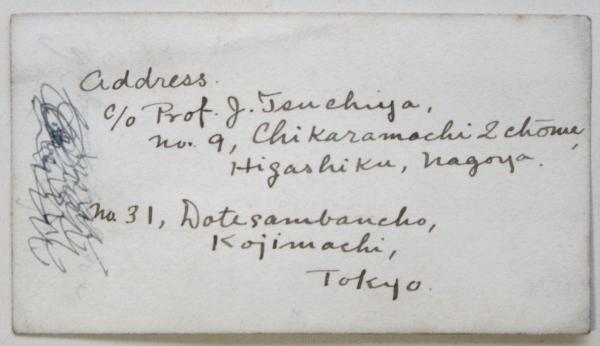 Address.
c/o Prof. J. Tsuchiya,
no. 9, Chikaramachi 2 chōme,
Higashiku, Nagoya.
No. 31, Dotesambancho,
Kojimachi,
Tokyo.